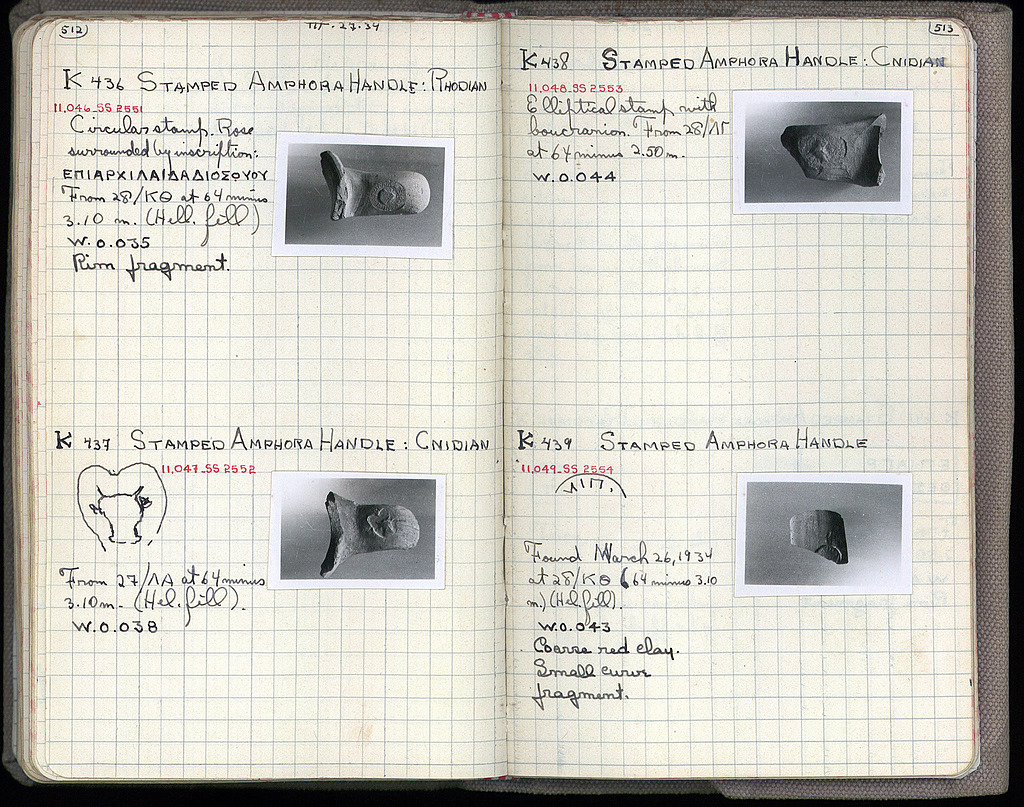 512
III-27-34
K 436 STAMPED AMPHORA HANDLE: RHODIAN
11,046_SS 2551
Circular stamp. Rose
surrounded by inscription:
ΕΠΙΑΡΧΙΛΑΙΔΑΔΙΟΣΘΥΟΥ
From 28/ΚΘ at 64 minus
3.10 m. (Hell. fill)
W. 0.035
Rim fragment.
K 437 STAMPED AMPHORA HANDLE: CNIDIAN
11,047_SS 2552
From 27/ΛΑ at 64 minus
3.10 m. (Hel. fill).
W. 0.038
513
K 438 STAMPED AMPHORA HANDLE: CNIDIAN
11,048_SS 2553
Elliptical stamp with
boucranion. From 28/ΛΓ
at 64 minus 2.50 m.
W. 0.044
K 439 STAMPED AMPHORA HANDLE
11,049_SS 2554
Found March 26, 1934
at 28/ΚΘ (64 minus 3.10
m.) (Hel. fill).
W. 0.043
Coarse red clay.
Small curve
fragment.